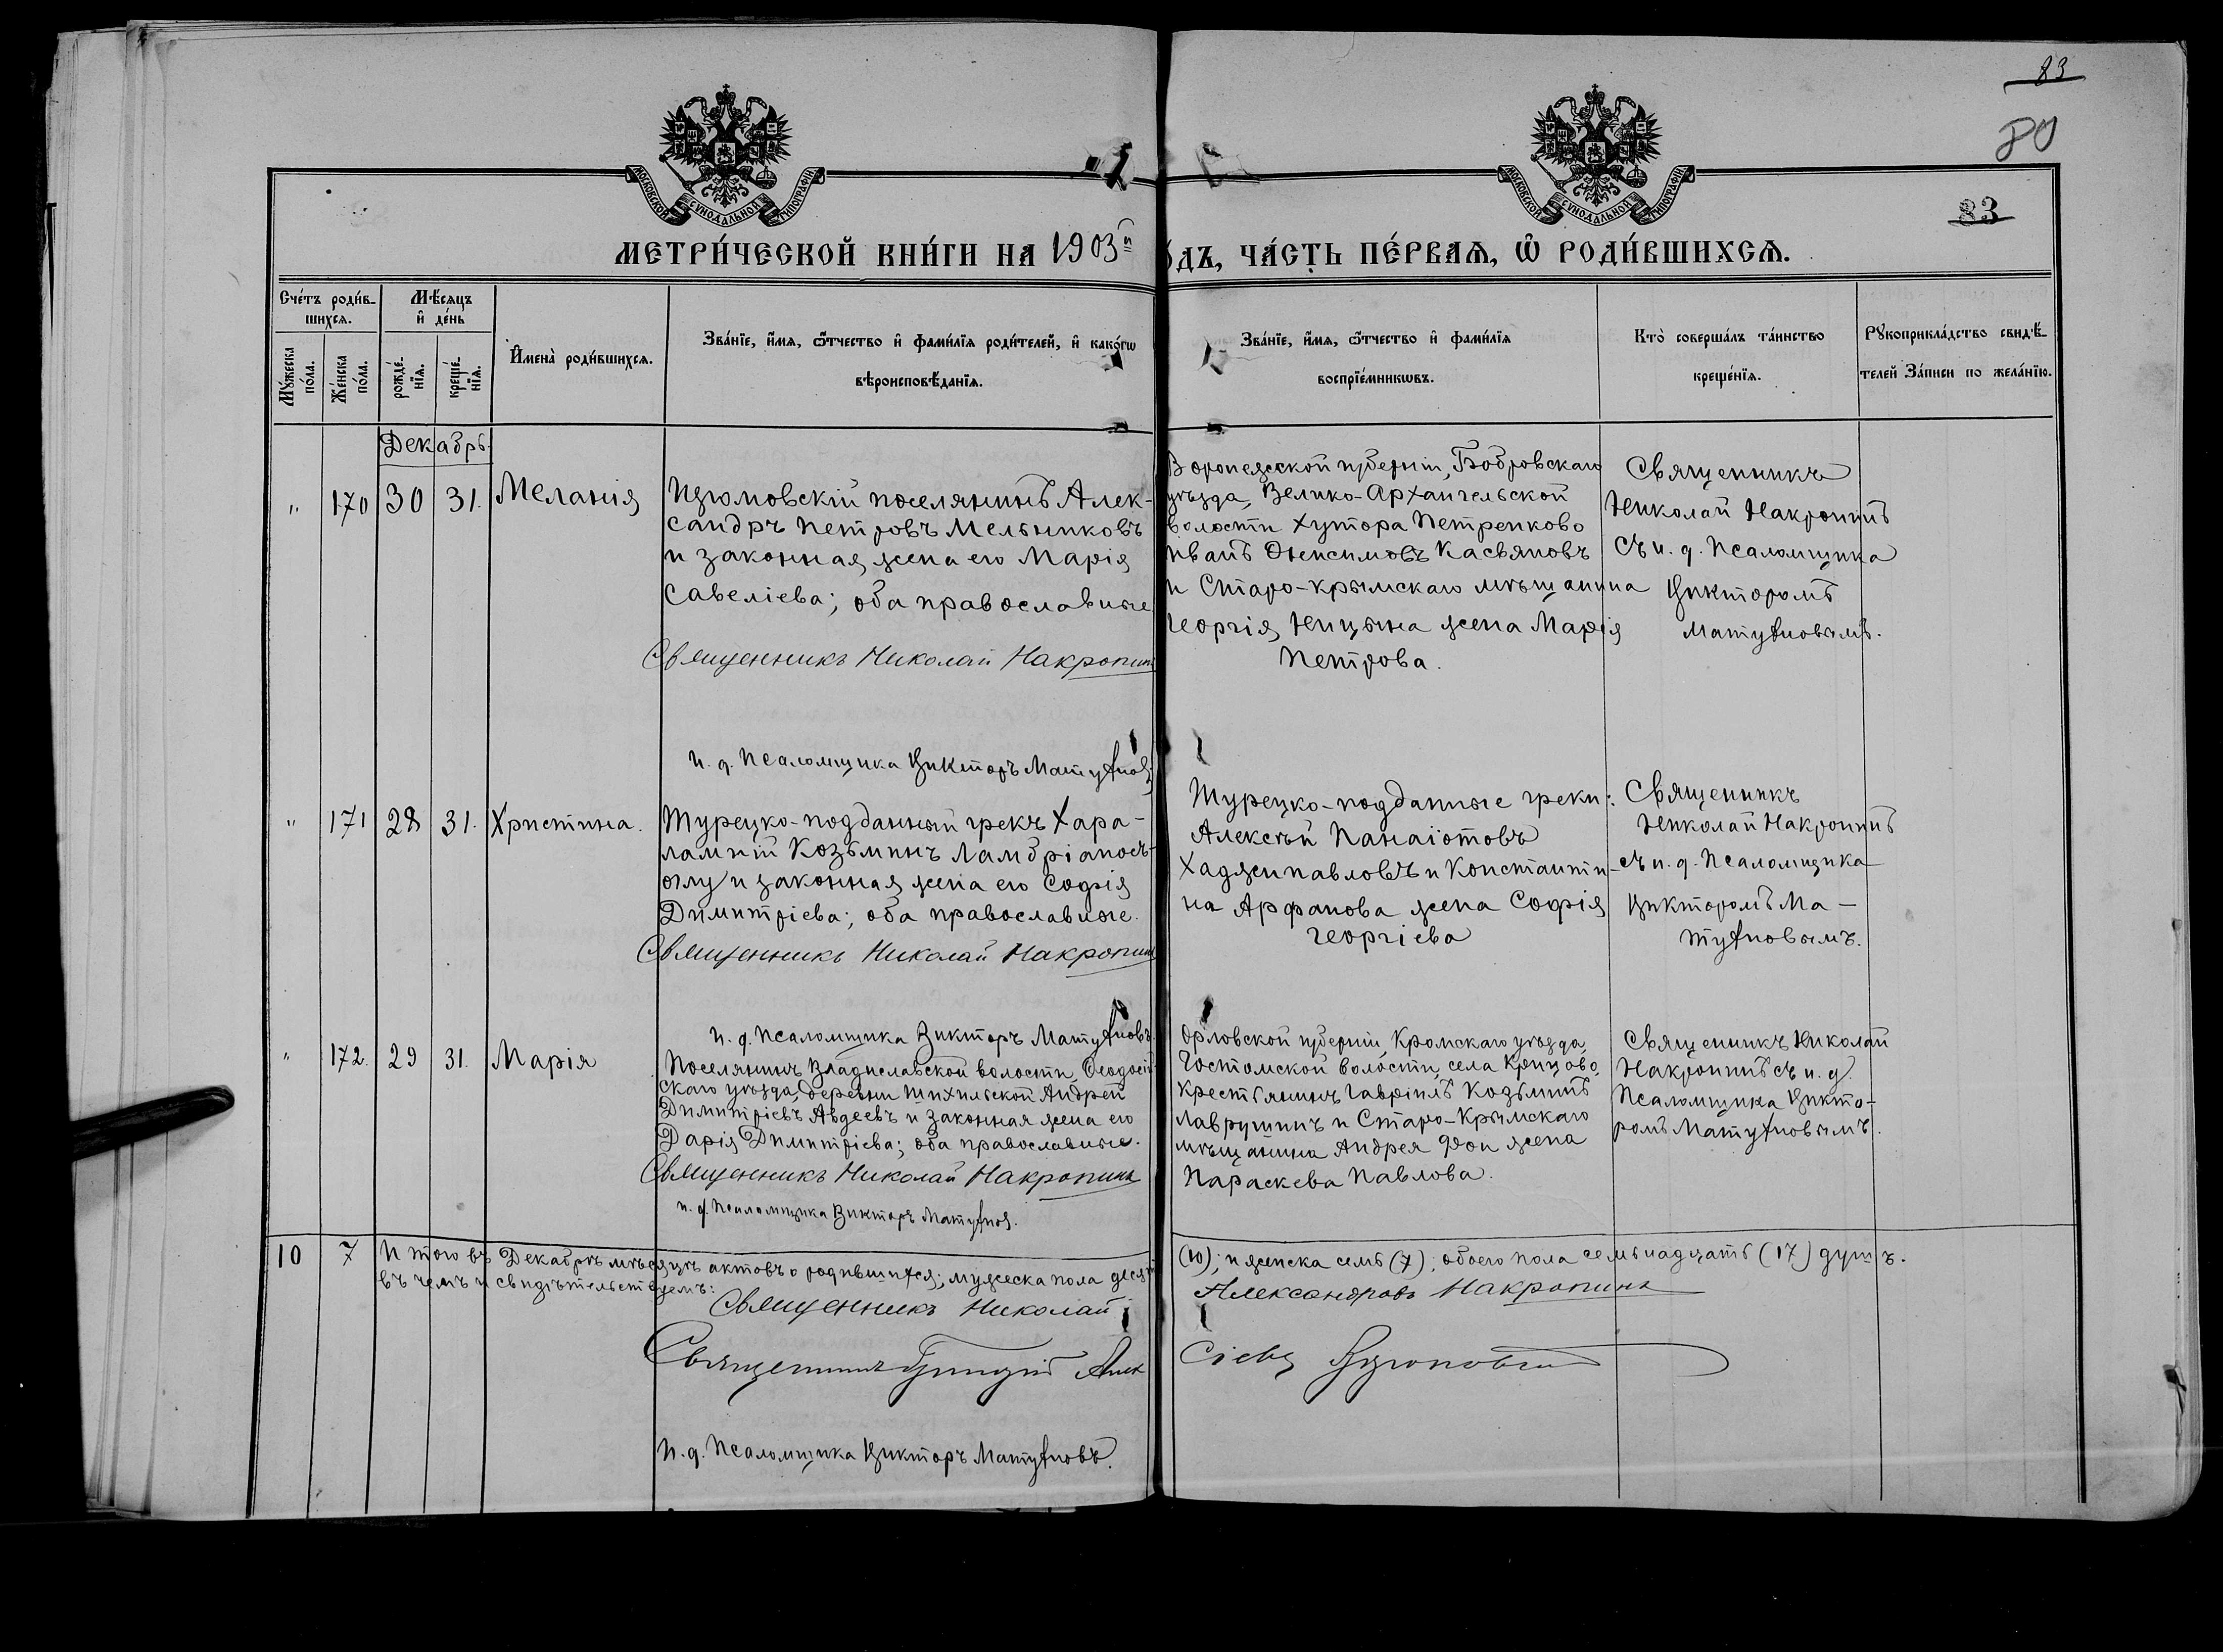 83
80
83
МОСКОВСКОЙ СѴНОДАЛЬНОЙ ТИПОГРАФІИ
МОСКОВСКОЙ СѴНОДАЛЬНОЙ ТИПОГРАФІИ
МЕТРИ́ЧЕСКОЙ КНИ́ГИ НА 1903й
ДЪ, ЧА́СТЬ ПЕ́РВАѦ, Ѽ РОДИ́ВШИХСѦ.
Сче́тъ роди́в-
шихсѧ.
Мѣ́сяцъ
и҆ де́нь
Мꙋ́жеска
по́ла.
Же́нска
по́ла.
рожде́-
нїѧ.
креще́-
нїѧ.
И҆мена̀ роди́вшихсѧ.
Зва́нїе, и҆́мѧ, ѻ҆́тчество и҆ фами́лїѧ роди́телей, и҆ како́гѡ
вѣроисповѣ́данїѧ.
Зва́нїе, и҆́мѧ, ѻ҆́тчество и҆ фами́лїѧ
воспрїе́мникѡвъ.
Кто̀ соверша́лъ та́инство
креще́нїѧ.
Рꙋкоприкла́дство свидѣ́-
телей За́писи по жела́нїю.
Декабрь.
" 170 30 31. Меланія
Изюмовскій поселянинъ Алек-
сандръ Петровъ Мельниковъ
и законная жена его Марія
Савеліева; оба православные
Священникъ Николай Накропинъ
И. д. Псаломщика Викторъ Матухновъ
Воронежской губерніи, Бобровскаго
уѣзда, Велико-Архангельской
волости хутора Петренково
Иванъ Онисимовъ Касьяновъ
и Старо-Крымскаго мѣщанина
Георгія Ницына жена Марія
Петрова.
Священникъ
Николай Накропинъ
съ и. д. Псаломщика
Викторомъ
Матухновымъ.
" 171 28 31. Христина.
Турецко-подданный грекъ Хара-
лампій Козьминъ Ламбріаносъ-
оглу и законная жена его Софія
Димитріева; оба православные.
Священникъ Николай Накропинъ
И. д. Псаломщика Викторъ Матухновъ
Турецко-подданные греки:
Алексѣй Панаіотовъ
Хаджипавловъ и Константи-
на Арфанова жена Софія
Георгіева
Священникъ
Николай Накропинъ
съ и. д. Псаломщика
Викторомъ Ма-
тухновымъ.
" 172. 29 31. Марія
Поселянинъ Владиславской волости, Ѳеодосій-
скаго уѣзда, деревни Шихильской Андрей
Димитріевъ Авдеевъ и законная жена его
Дарія Димитріева; оба православные.
Священникъ Николай Накропинъ
и. д. Псаломщика Викторъ Матухнов.
Орловской губерніи, Кромскаго уѣзда,
Гостомской волости, села
крестьянинъ Гавріилъ Козьминъ
Лаврушинъ и Старо-Крымскаго
мѣщанина Андрея жена
Параскева Павлова.
Священникъ Николай
Накропинъ съ и. д.
Псаломщика Викто-
ромъ Матухновымъ.
10 7 Итого въ Декабрѣ мѣсяцѣ актовъ о родившихся; мужеска пола десять
(10); и женска семь (7); обоего пола семьнадцать (17) душъ.
въ чемъ и свидѣтельствуемъ:
Священникъ Николай
Александровъ Накропинъ
Священникъ
И. д. Псаломщика Викторъ Матухновъ.